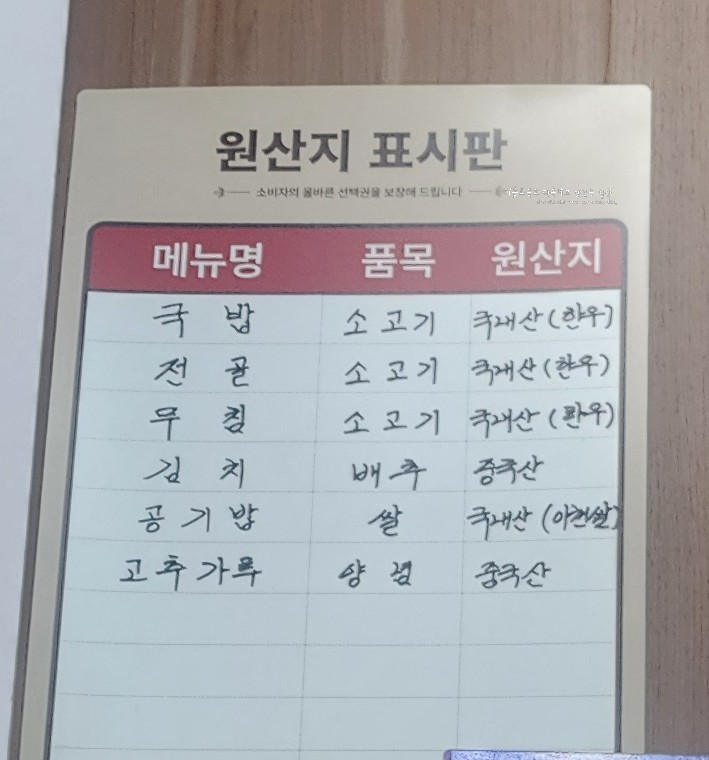 원산지 표시판
소비자의 올바른 선택권을 보장해 드립니다
메뉴명 품목 원산지
국밥 소고기 국내산(한우)
전골 소고기 국내산(한우)
무침 소고기 국내산(한우)
김치 배추 중국산
공기밥 쌀 국내산
고추가루 양념 중국산